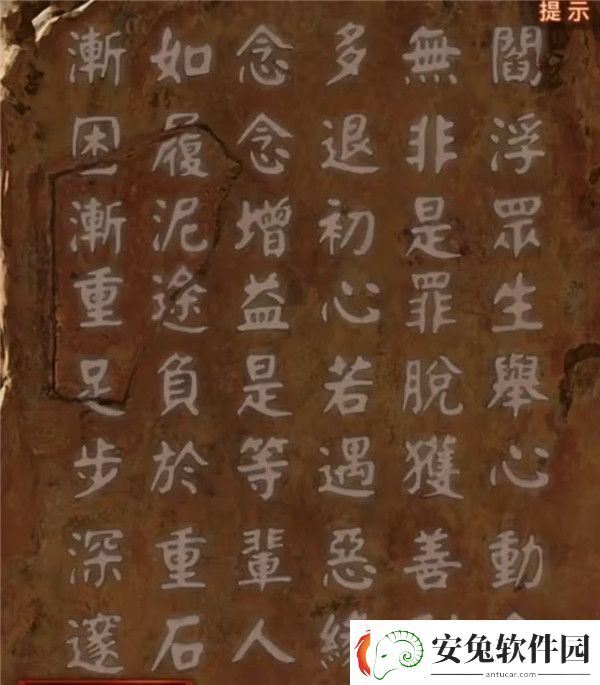 提示
閻浮眾生舉心動
無非是罪脫獲善
多退初心若遇惡
念念增益是等輩人
如履泥途負於重石
漸困漸重足步深邃
安兔软件园
antucar.com